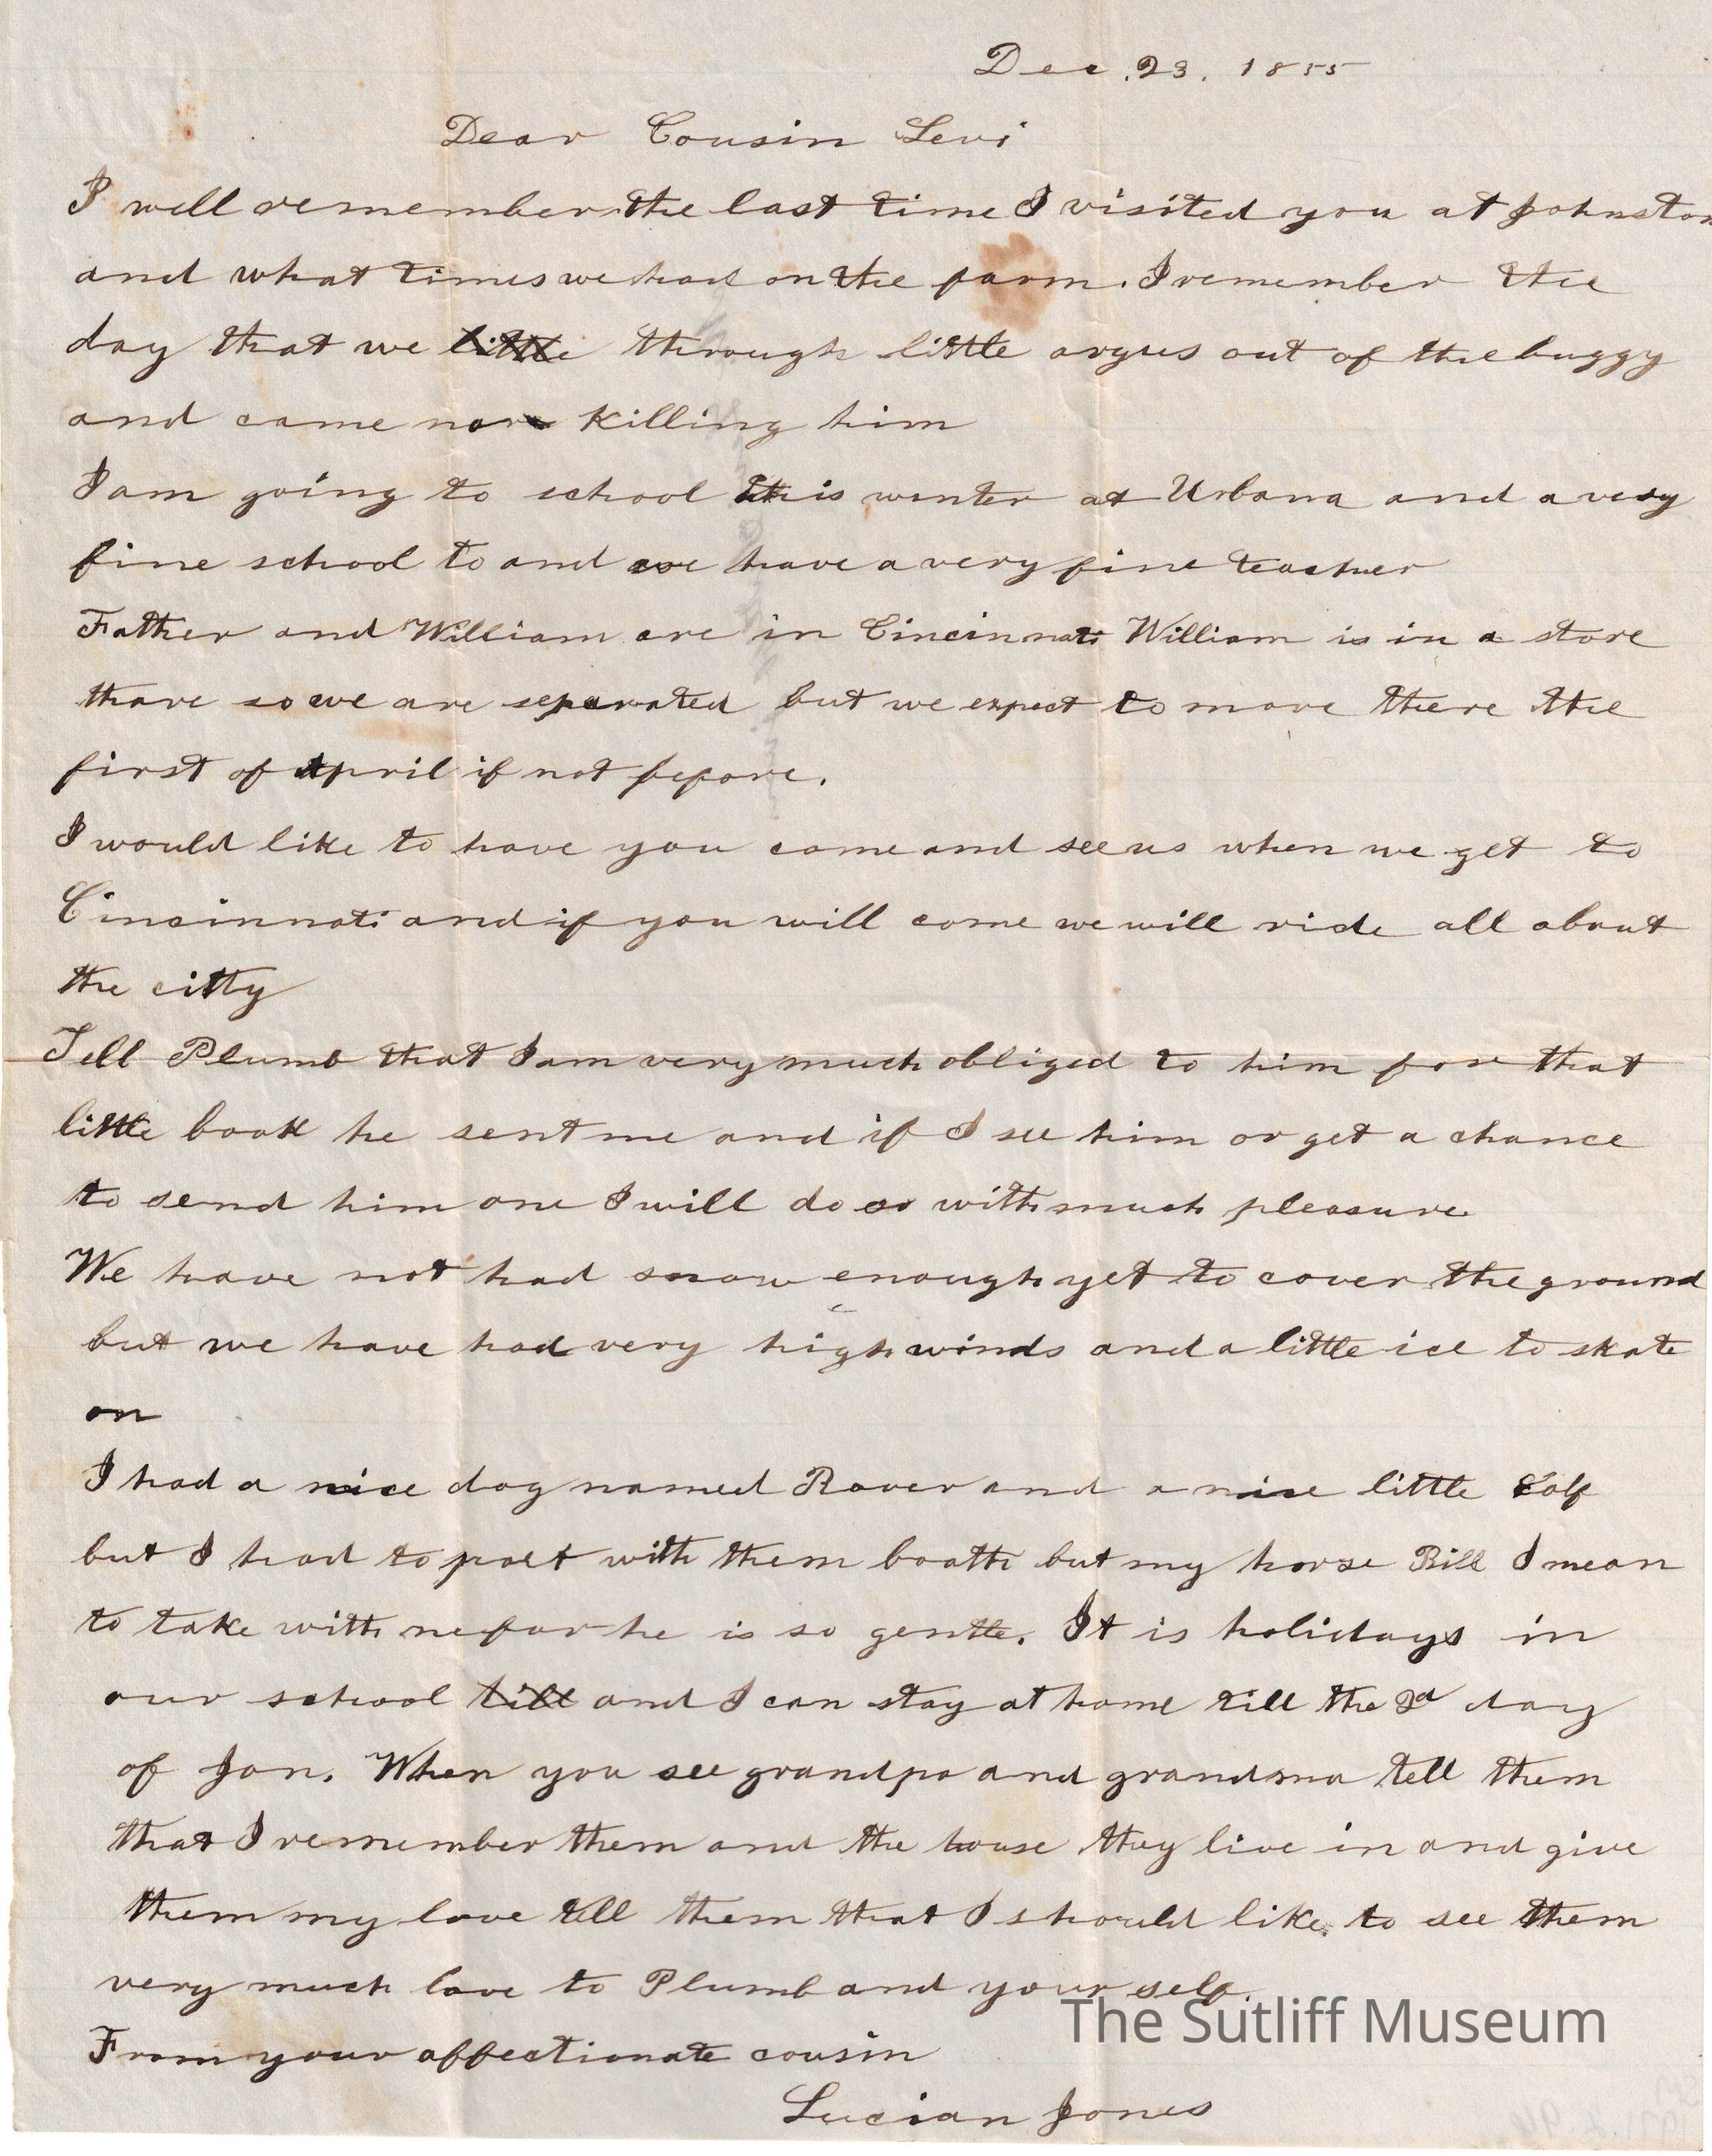 Dec. 23. 1855
Dear Cousin Levi
I well remember the last time I visited you at Johnston
and what times we had on the farm. I remember the
day that we little through little argus out of the buggy
and came nare killing him
I am going to school this winter at Urbana and a very
fine school to and we have a very fine teacher
Father and William are in Cincinnati William is in a store
thare so we are separated but we expect to move there the
first of April if not fefore.
I would like to have you come and see us when we get to
Cincinnati and if you will come we will ride all about
the citty
Tell Plumb that I am very much obliged to him for that
little book he sent me and if I see him or get a chance
to send him one I will do so with much pleasure
We have not had snow enough yet to cover the ground
but we have had very high winds and a little ice to skate
on
I had a nice dog named Rover and a nice little Colf
but I had to part with them boath but my horse Bill I mean
to take with me for he is so gentle. It is holidays in
our school till and I can stay at home till the 2d day
of Jan. When you see grandpa and grandma tell them
that I remember them and the house they live in and give
them my love tell them that I should like to see them
very much love to Plumb and your self.
From your affectionate cousin
Lucian Jones
The Sutliff Museum